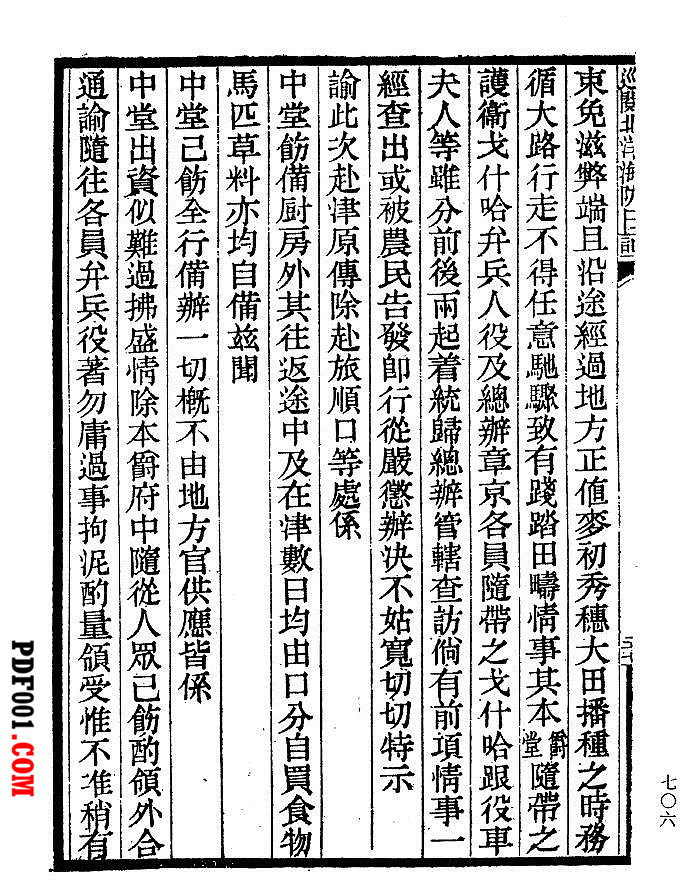 巡閱北洋海防日記
東免滋弊端且沿途經過地方正值麥初秀穗大田播種之時務
循大路行走不得任意馳驟致有踐踏田疇情事其本爵堂隨帶之
護衛戈什哈弁兵人役及總辦章京各員隨帶之戈什哈跟役車
夫人等雖分前後兩起着統歸總辦管轄查訪倘有前項情事一
經查出或被農民告發卽行從嚴懲辦決不姑寬切切特示
諭此次赴津原傳除赴旅順口等處係
中堂飭備厨房外其往返途中及在津數日均由口分自買食物
馬匹草料亦均自備茲聞
中堂已飭全行備辦一切槪不由地方官供應皆係
中堂出資似難過拂盛情除本爵府中隨從人眾已飭酌領外合
通諭隨往各員弁兵役著勿庸過事拘泥酌量領受惟不准稍有
七〇六
PDF001.COM